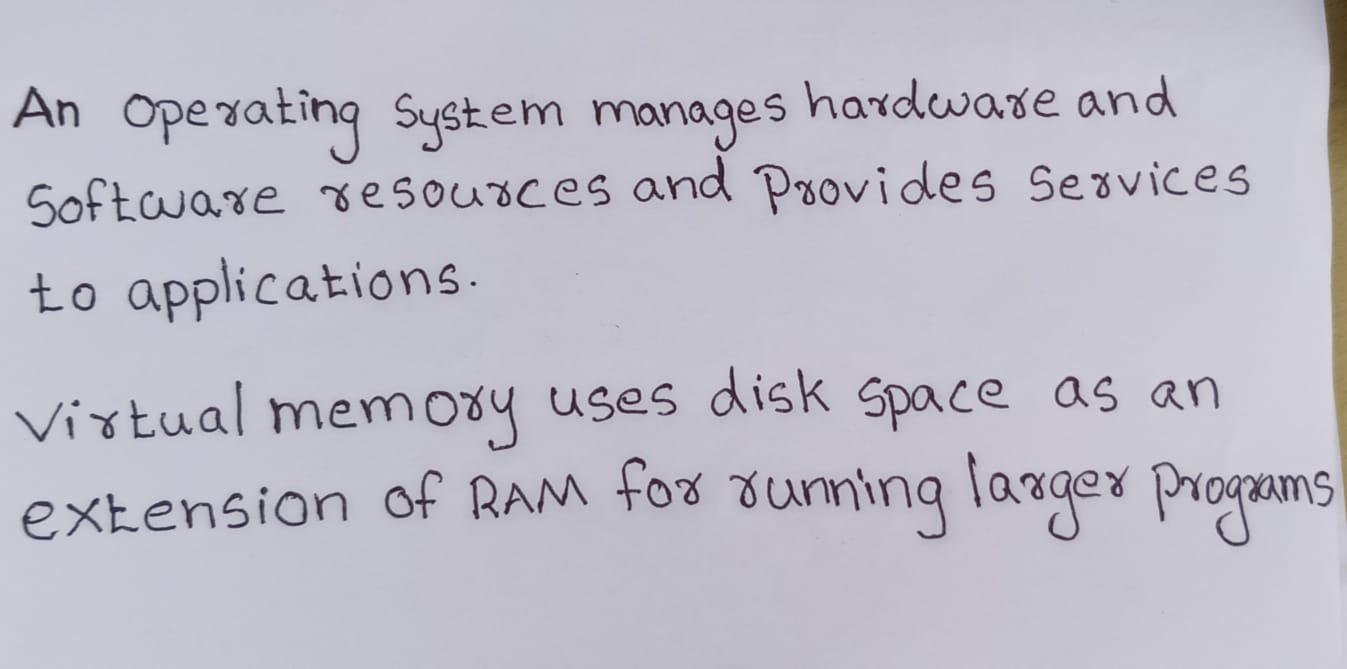 An Operating System manages hardware and
Software resources and Provides Services
to applications.
Virtual memory uses disk space as an
extension of RAM for running larger programs